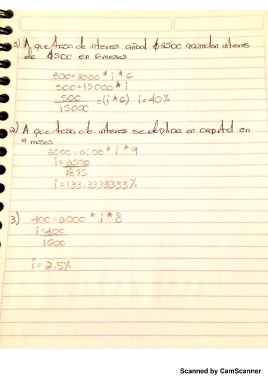 A que tasa de interes anual $2500
de $500 en 6 meses
500=2500*i*6
500=15000*i
500
15000
=(i*6) i=40%
2) A que tasa de interes se duplica un capital en
9 meses
i=2500
1875
i=133.3333333%
3) 400=2000*i*8
i=400
1600
i=2.5%
Scanned by CamScanner